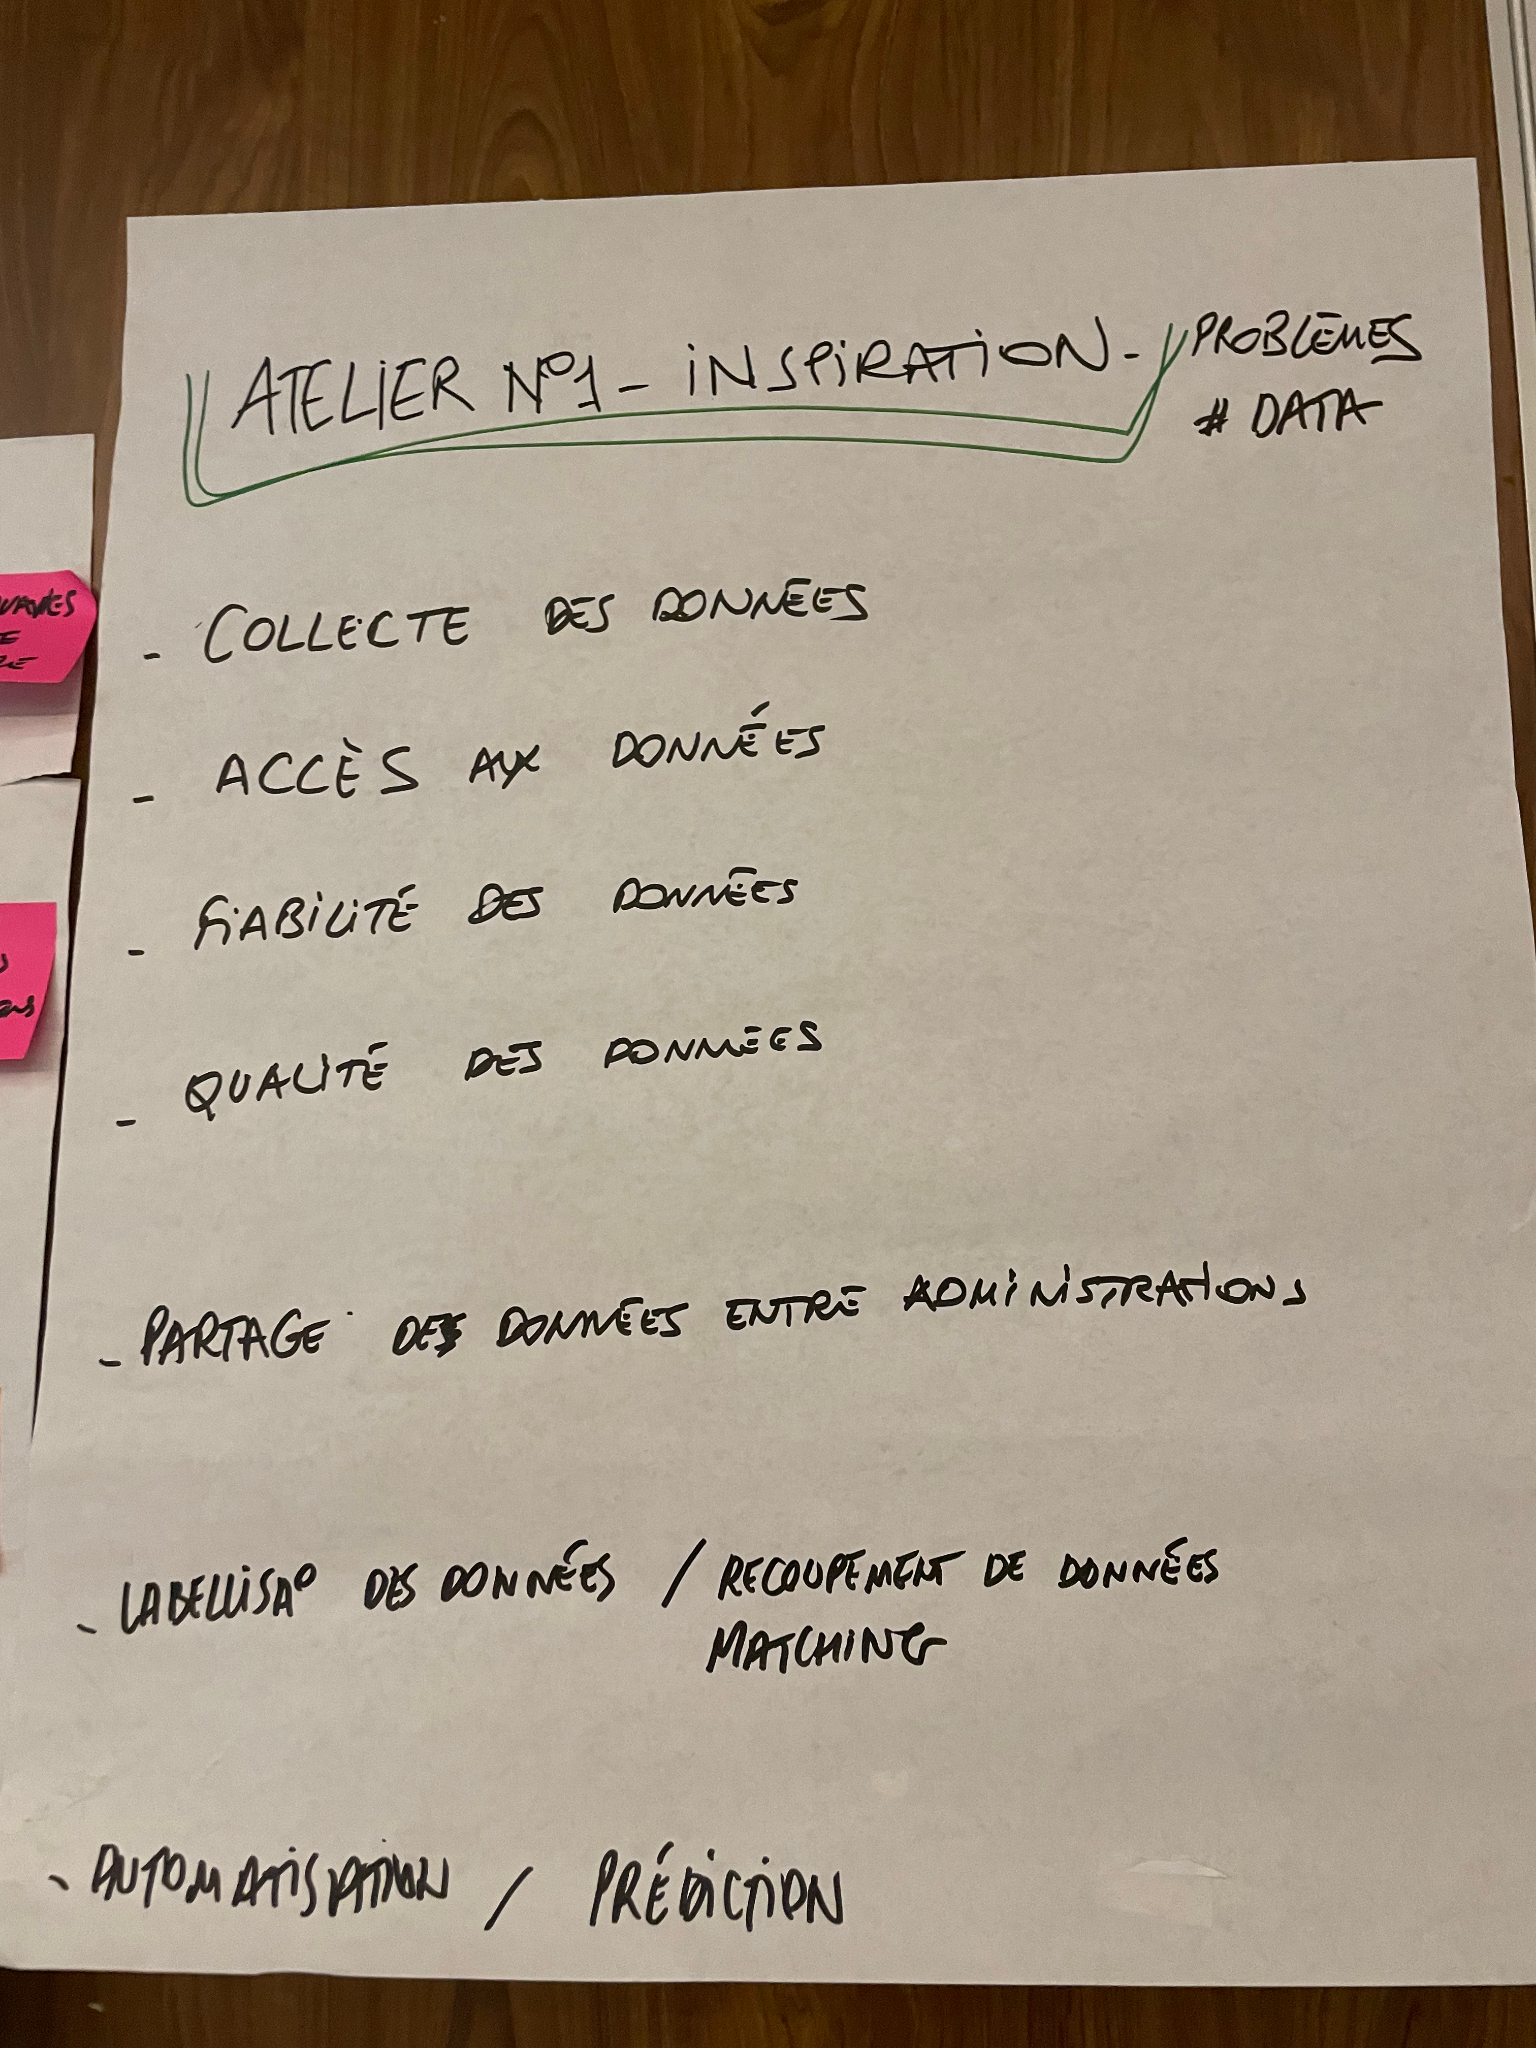 ATELIER N°1 - INSPIRATION - PROBLÈMES
# DATA
- COLLECTE DES DONNÉES
- ACCÈS AUX DONNÉES
- FIABILITÉ DES DONNÉES
- QUALITÉ DES DONNÉES
- PARTAGE DES DONNÉES ENTRE ADMINISTRATIONS
- LABELLISA° DES DONNÉES / RECOUPEMENT DE DONNÉES
MATCHING
- AUTOMATISATION / PRÉDICTION